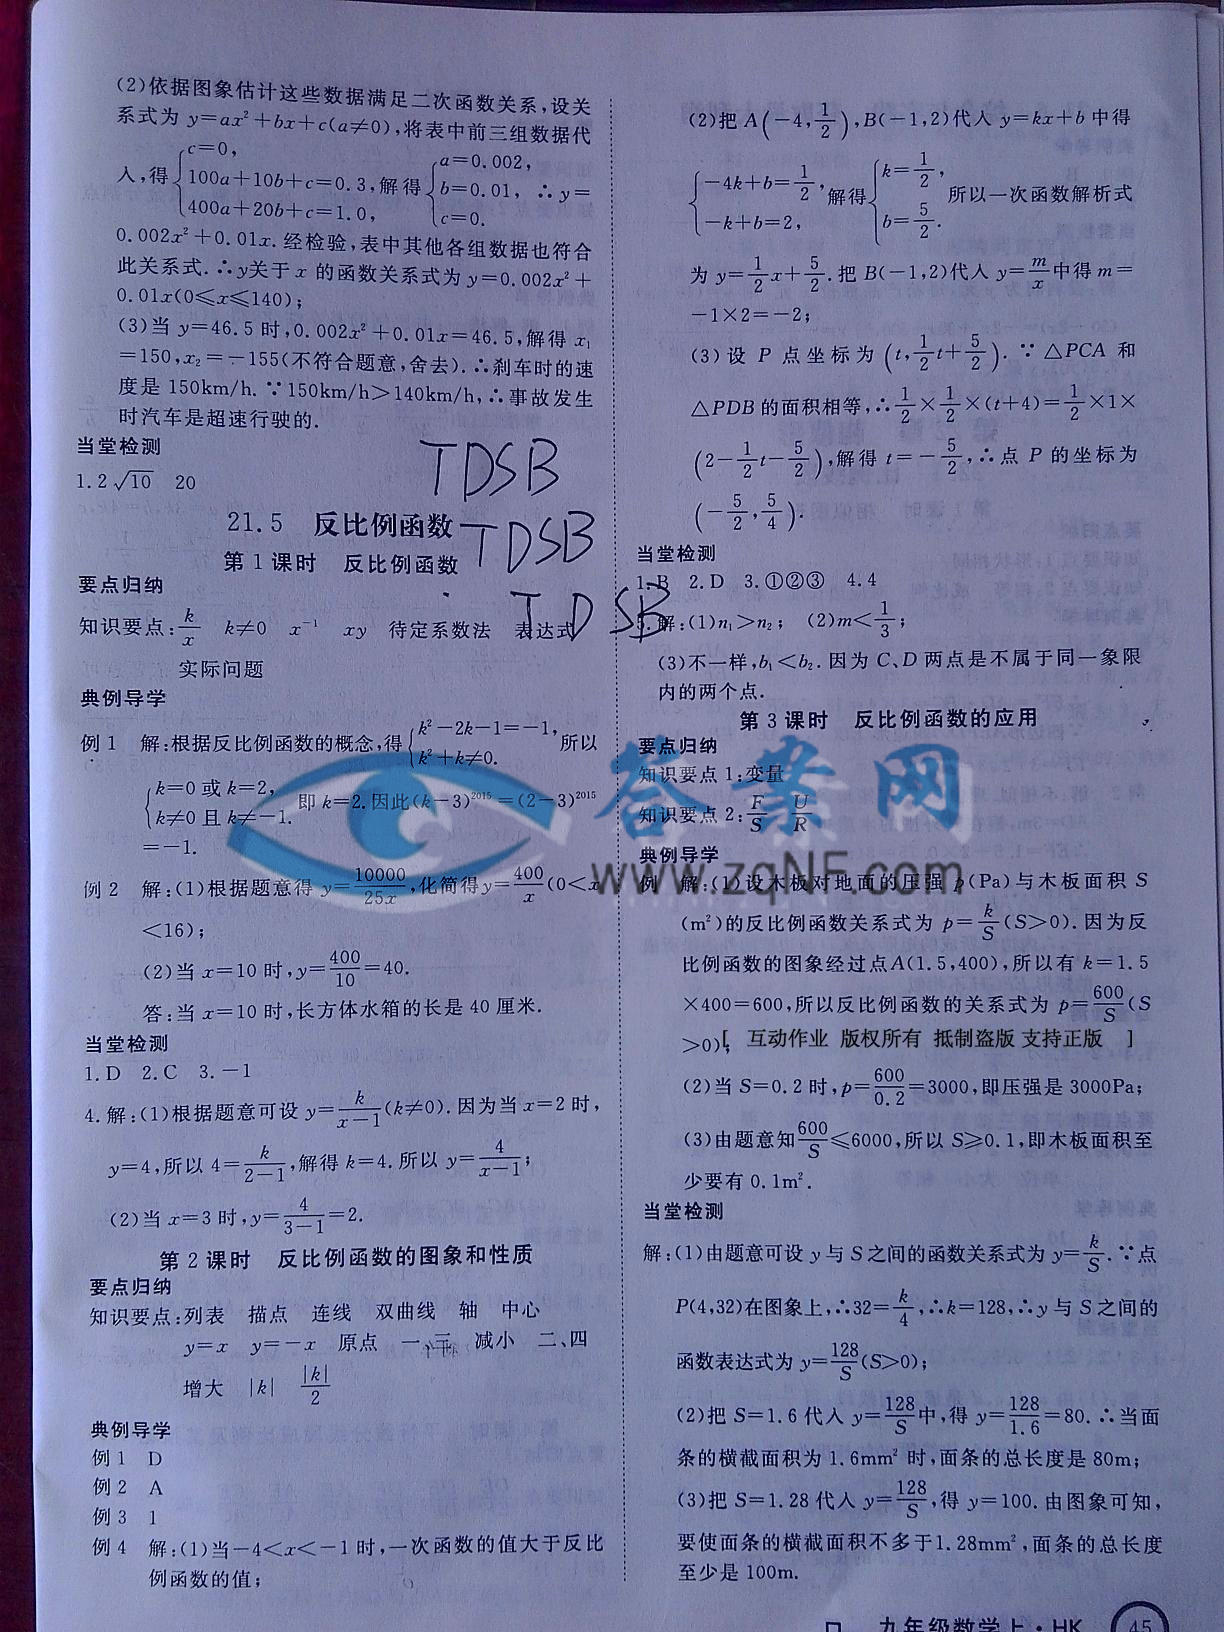 (2)依据图象估计这些数据满足二次函数关系,设关
系式为 y=ax²+bx+c(a≠0),将表中前三组数据代
入,得{c=0, 100a+10b+c=0.3, 400a+20b+c=1.0, 解得{a=0.002, b=0.01, c=0. ∴y=
0.002x²+0.01x.经检验,表中其他各组数据也符合
此关系式.∴y关于 x 的函数关系式为 y=0.002x²+
0.01x(0≤x≤140);
(3)当 y=46.5 时,0.002x²+0.01x=46.5,解得 x₁
=150,x₂=-155(不符合题意,舍去).∴刹车时的速
度是 150km/h.∵150km/h>140km/h,∴事故发生
时汽车是超速行驶的.
当堂检测
1.2√10 20
TDSB
21.5 反比例函数
TDSB
第 1 课时 反比例函数
要点归纳
TDSB
知识要点:k/x k≠0 x⁻¹ xy 待定系数法 表达式
实际问题
典例导学
例 1 解:根据反比例函数的概念,得{k²-2k-1=-1, k²+k≠0. 所以
{k=0 或 k=2, k≠0 且 k≠-1. 即 k=2.因此(k-3)²⁰¹⁵=(2-3)²⁰¹⁵
=-1.
例 2 解:(1)根据题意得 y=10000/25x,化简得y=400/x(0<x
<16);
(2)当 x=10 时,y=400/10=40.
答:当 x=10 时,长方体水箱的长是 40 厘米.
当堂检测
1.D 2.C 3.-1
4.解:(1)根据题意可设 y=k/(x-1)(k≠0).因为当 x=2 时,
y=4,所以 4=k/(2-1),解得 k=4.所以 y=4/(x-1);
(2)当 x=3 时,y=4/(3-1)=2.
第 2 课时 反比例函数的图象和性质
要点归纳
知识要点:列表 描点 连线 双曲线 轴 中心
y=x y=-x 原点 一、三 减小 二、四
增大 |k| |k|/2
典例导学
例 1 D
例 2 A
例 3 1
例 4 解:(1)当-4<x<-1 时,一次函数的值大于反比
例函数的值;
(2)把 A(-4,1/2),B(-1,2)代人 y=kx+b 中得
{-4k+b=1/2, -k+b=2, 解得{k=1/2, b=5/2. 所以一次函数解析式
为 y=1/2x+5/2.把 B(-1,2)代人 y=m/x中得 m=
-1×2=-2;
(3)设 P 点坐标为(t,1/2t+5/2).∵△PCA 和
△PDB的面积相等,∴1/2×1/2×(t+4)=1/2×1×
(2-1/2t-5/2),解得 t=-5/2,∴点 P 的坐标为
(-5/2,5/4).
当堂检测
1.B 2.D 3.①②③ 4.4
5.解:(1)n₁>n₂; (2)m<1/3;
(3)不一样,b₁<b₂.因为 C、D 两点是不属于同一象限
内的两个点.
第 3 课时 反比例函数的应用
要点归纳
知识要点 1:变量
知识要点 2:F/S U/R
答案网
www.zqNF.com
典例导学
例 解:(1)设木板对地面的压强 p(Pa)与木板面积 S
(m²)的反比例函数关系式为 p=k/S(S>0).因为反
比例函数的图象经过点A(1.5,400),所以有 k=1.5
×400=600,所以反比例函数的关系式为 p=600/S(S
>0);
[ 互动作业 版权所有 抵制盗版 支持正版 ]
(2)当 S=0.2 时,p=600/0.2=3000,即压强是 3000Pa;
(3)由题意知600/S≤6000,所以 S≥0.1,即木板面积至
少要有 0.1m².
当堂检测
解:(1)由题意可设 y 与 S 之间的函数关系式为 y=k/S.∵点
P(4,32)在图象上,∴32=k/4,∴k=128,∴y 与 S 之间的
函数表达式为 y=128/S(S>0);
(2)把 S=1.6 代人 y=128/S中,得 y=128/1.6=80.∴当面
条的横截面积为 1.6mm² 时,面条的总长度是 80m;
(3)把 S=1.28 代人 y=128/S,得 y=100.由图象可知,
要使面条的横截面积不多于1.28mm²,面条的总长度
至少是 100m.
九年级数学上·HK 45